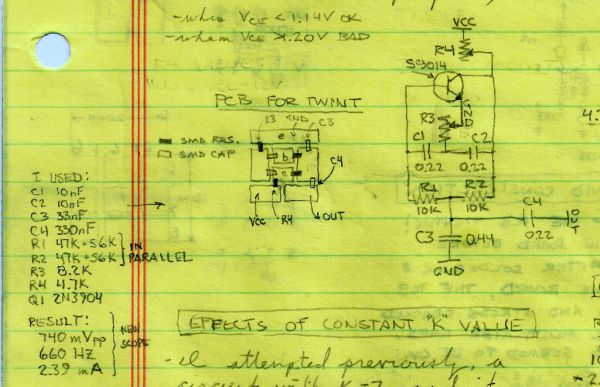 - when VCE < 1.14V OK
- when VCE > 1.20V BAD
PCB FOR TWINT
R3 GND C3
e
SMD RES.
SMD CAP
b
c
C4
VCC R4 OUT
VCC
R4
S9014
GND
R3
C1 C2
0.22 0.22
R1 R2
10K 10K
C4
0.22
OUT
C3 0.44
GND
I USED:
C1 10nF
C2 10nF
C3 33nF
C4 330nF
R1 47K+56K } IN
R2 47K+56K } PARALLEL
R3 8.2K
R4 4.7K
Q1 2N3904
RESULT:
740 mVpp
660 HZ
2.39 mA
NEW
SCOPE
EFFECTS OF CONSTANT "K" VALUE
- I attempted previously, a